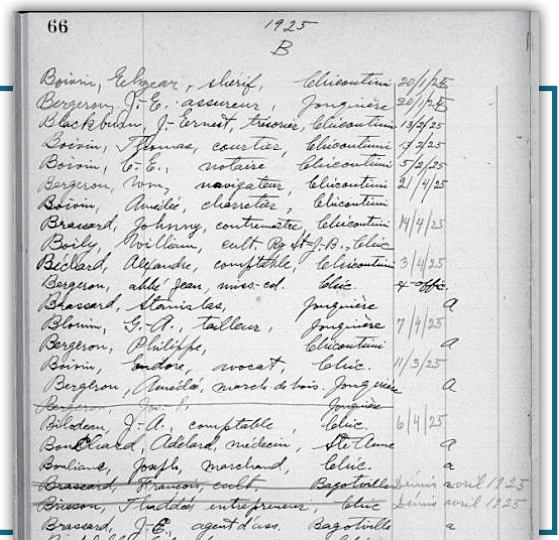 66
1925
B
Boivin, Elzear, shérif, Chicoutimi 20/1/25
Bergeron, J.-E. assureur, Jonquière 20/1/25
Blackburn, J.-Ernest, trésorier, Chicoutimi 13/2/25
Boivin, Thomas, courtier, Chicoutimi 2/25
Boivin, C.-E., notaire Chicoutimi 5/2/25
Bergeron, Wm, navigateur, Chicoutimi 21/4/25
Boivin, Amédée, charretier, Chicoutimi
Brassard, Johnny, contremaître, Chicoutimi 14/4/25
Boily, William, cult. Rg St-J.-B., Chic
Béchard, Alexandre, comptable, Chicoutimi 3/4/25
Bergeron, abbé Jean, miss-col. Chic.
Brassard, Stanislas, Jonquière a
Blouin, G.-A., tailleur, Jonquière 7/4/25
Bergeron, Philippe, Chicoutimi a
Boivin, Endore, avocat, Chic. 11/3/25
Bergeron, Amédé, march. de bois. Jonquière a
Bergeron, Jos. Jonquière
Bilodeau, J.-A., comptable, Chic. 6/4/25
Bouchard, Adelard, médecin, Ste-Anne a
Boulianne, Joseph, marchand, Chic. a
Brassard, François, cult. Bagotville avril 1925
Brisson, Thaddée entrepreneur, Chic avril 1925
Brassard, J.-E., agent d'ass. Bagotville a